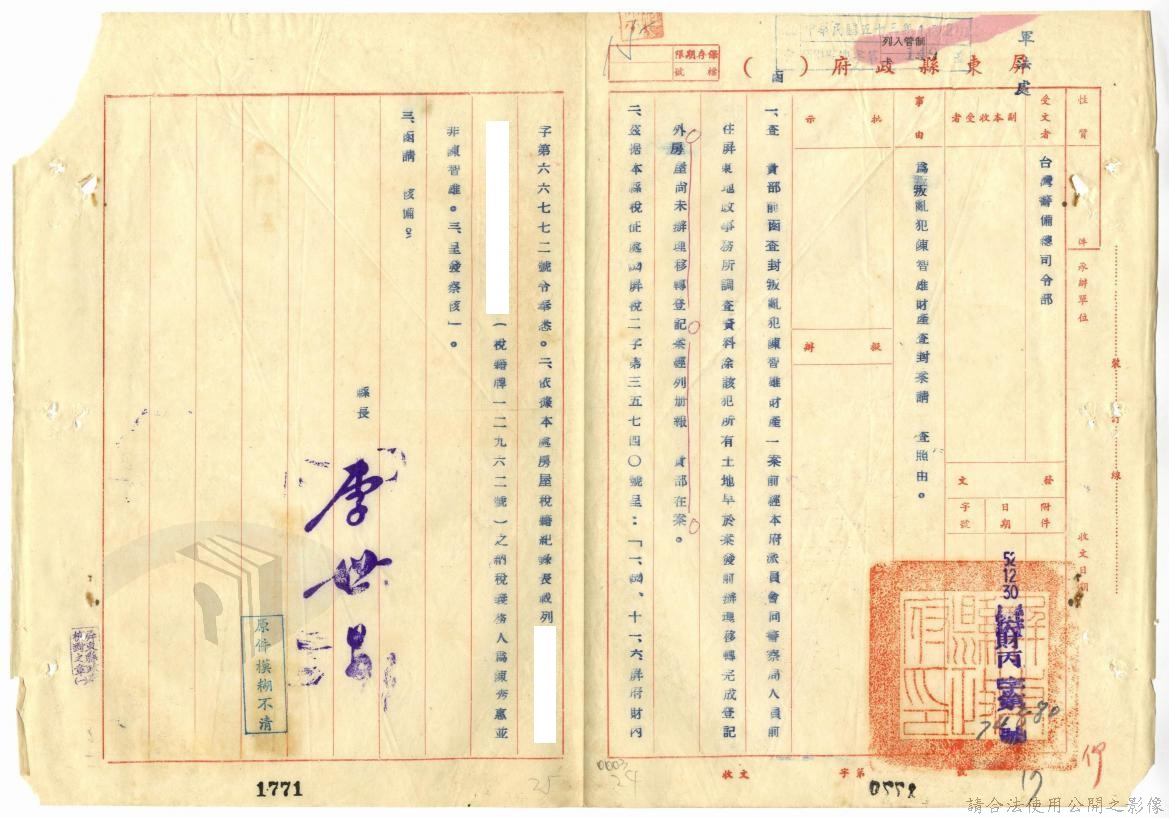 保存期限
檔號
列入管制
軍法處
屏東縣政府（函）
性質
件
受文者
台灣警備總司令部
副本收受者
發文
附件
日期
字號
52 12 30
財丙
承辦單位
收文日期
裝訂線
事由
為叛亂犯陳智雄財產查封案請　查照由。
批示
擬辦
一、查　貴部前函查封叛亂犯陳智雄財產一案前經本府派員會同警察局人員前
往屏東地政事務所調查資料除該犯所有土地早於案發前辦理移轉完成登記
外房屋尚未辦理移轉登記案經列册報　貴部在案。
二、茲据本縣稅征處屏稅二字第三五七四〇號呈：「一、十一、六屏府財丙
字第六六七七二號令奉悉。二、依據本處房屋稅籍紀錄表載列
（稅籍牌一二九六二號）之納稅義務人為陳秀惠並
非陳智雄。三、呈發察核」。
三、函請　核備。
縣長
李世昌
原件模糊不清
收文
字第
號
0003
24
25
1771
0552
請合法使用公開之影像